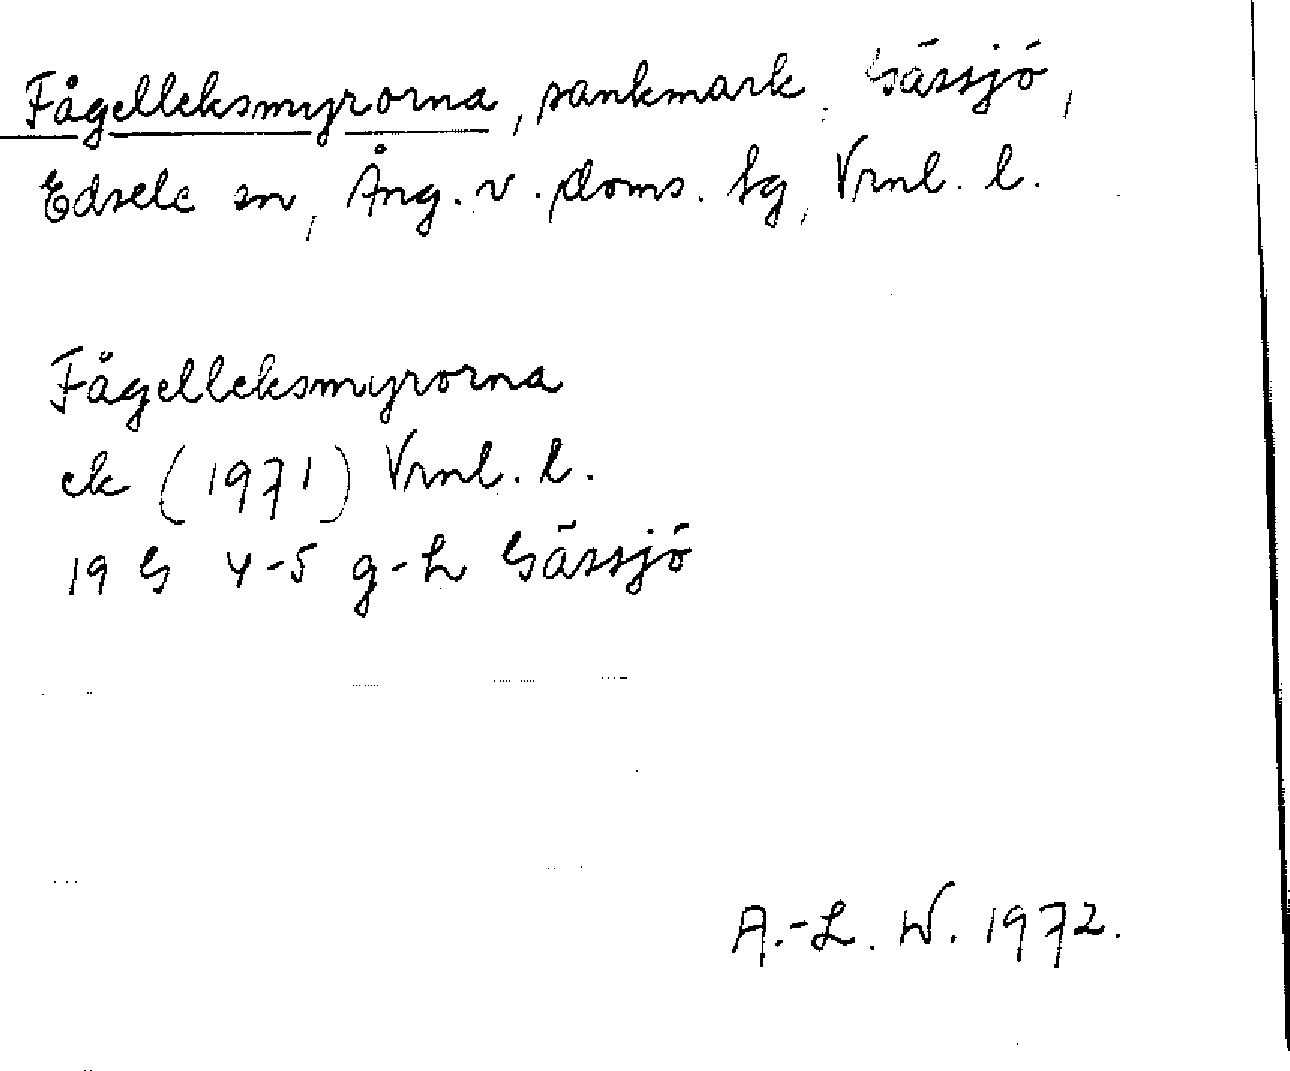 Fågelleksmyrorna, sankmark, Gässjö,
Edsele sn, Ång. v. doms. tg, Vrnl. l.
Fågelleksmyrorna
ek (1971) Vrnl. l.
19 G 4-5 g-h Gässjö
A.-L. W. 1972.